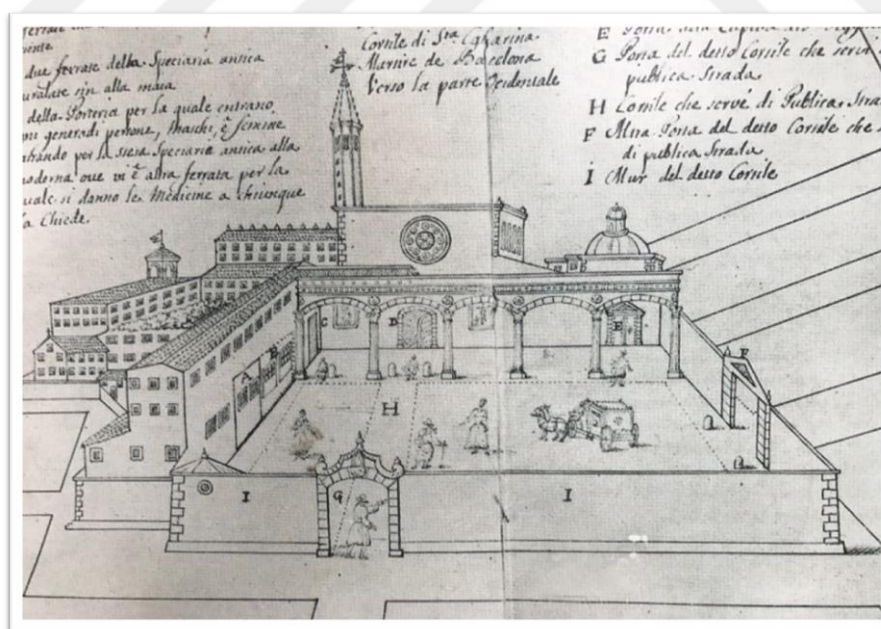 due ferrate della Speciaria antica
sin alla
della Porteria per la quale entrano
generadi persone, Maschi, è femine
per la stesa Speciaria antica alla
moderna oue vi è altra ferrata per la
quale si danno le Medicine a chiunque
la Chiede.
Cortile di Sta. Catharina
Martire de Barcelona
Verso la parte Ocidentale
E Porta
G Porta del detto Cortile che serve
publica Strada
H Cortile che serve di Publica Strada
F Altra Porta del detto Cortile che
di publica Strada
I Mur del detto Cortile
C
D
E
B
A
F
H
I
G
I